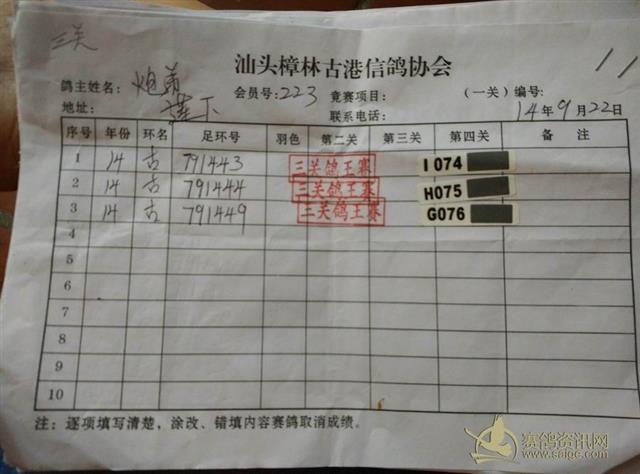 三关
汕头樟林古港信鸽协会
11
鸽主姓名：炮弟 会员号：223 竞赛项目： （一关）编号：
地址：莲下 联系电话： 14年9月22日
序号 年份 环名 足环号 羽色 第二关 第三关 第四关 备注
1 14 古 791443 三关鸽王赛 I 074
2 14 古 791444 三关鸽王赛 H075
3 14 古 791449 三关鸽王赛 G076
4
5
6
7
8
9
10
注：逐项填写清楚，涂改、错填内容赛鸽取消成绩。
赛鸽资讯网
www.saige.com